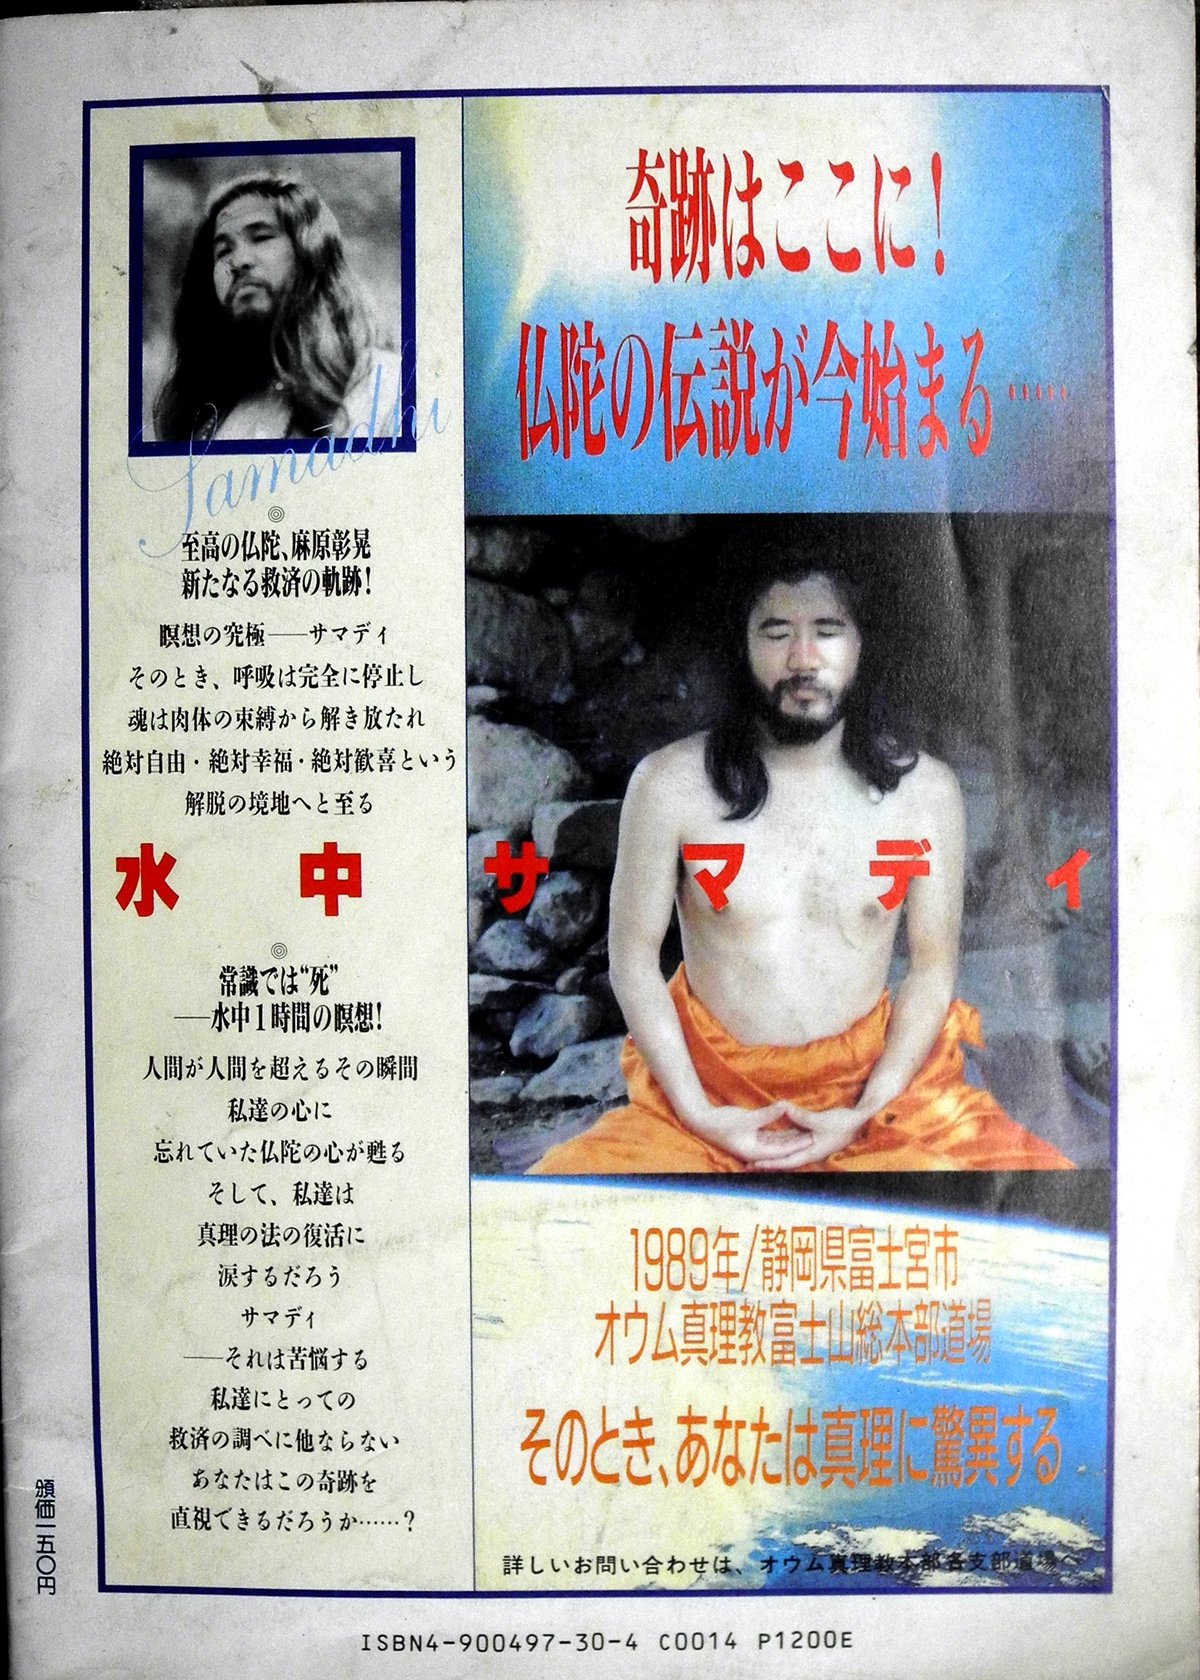 奇跡はここに!
仏陀の伝説が今始まる……
Samādhi
至高の仏陀、麻原彰晃
新たなる救済の軌跡!
瞑想の究極――サマディ
そのとき、呼吸は完全に停止し
魂は肉体の束縛から解き放たれ
絶対自由・絶対幸福・絶対歓喜という
解脱の境地へと至る
水中サマディ
常識では“死”
――水中1時間の瞑想!
人間が人間を超えるその瞬間
私達の心に
忘れていた仏陀の心が甦る
そして、私達は
真理の法の復活に
涙するだろう
サマディ
――それは苦悩する
私達にとっての
救済の調べに他ならない
あなたはこの奇跡を
直視できるだろうか……?
1989年/静岡県富士宮市
オウム真理教富士山総本部道場
そのとき、あなたは真理に驚異する
詳しいお問い合わせは、オウム真理教本部各支部道場へ
頒価一五〇円
ISBN4-900497-30-4 C0014 P1200E